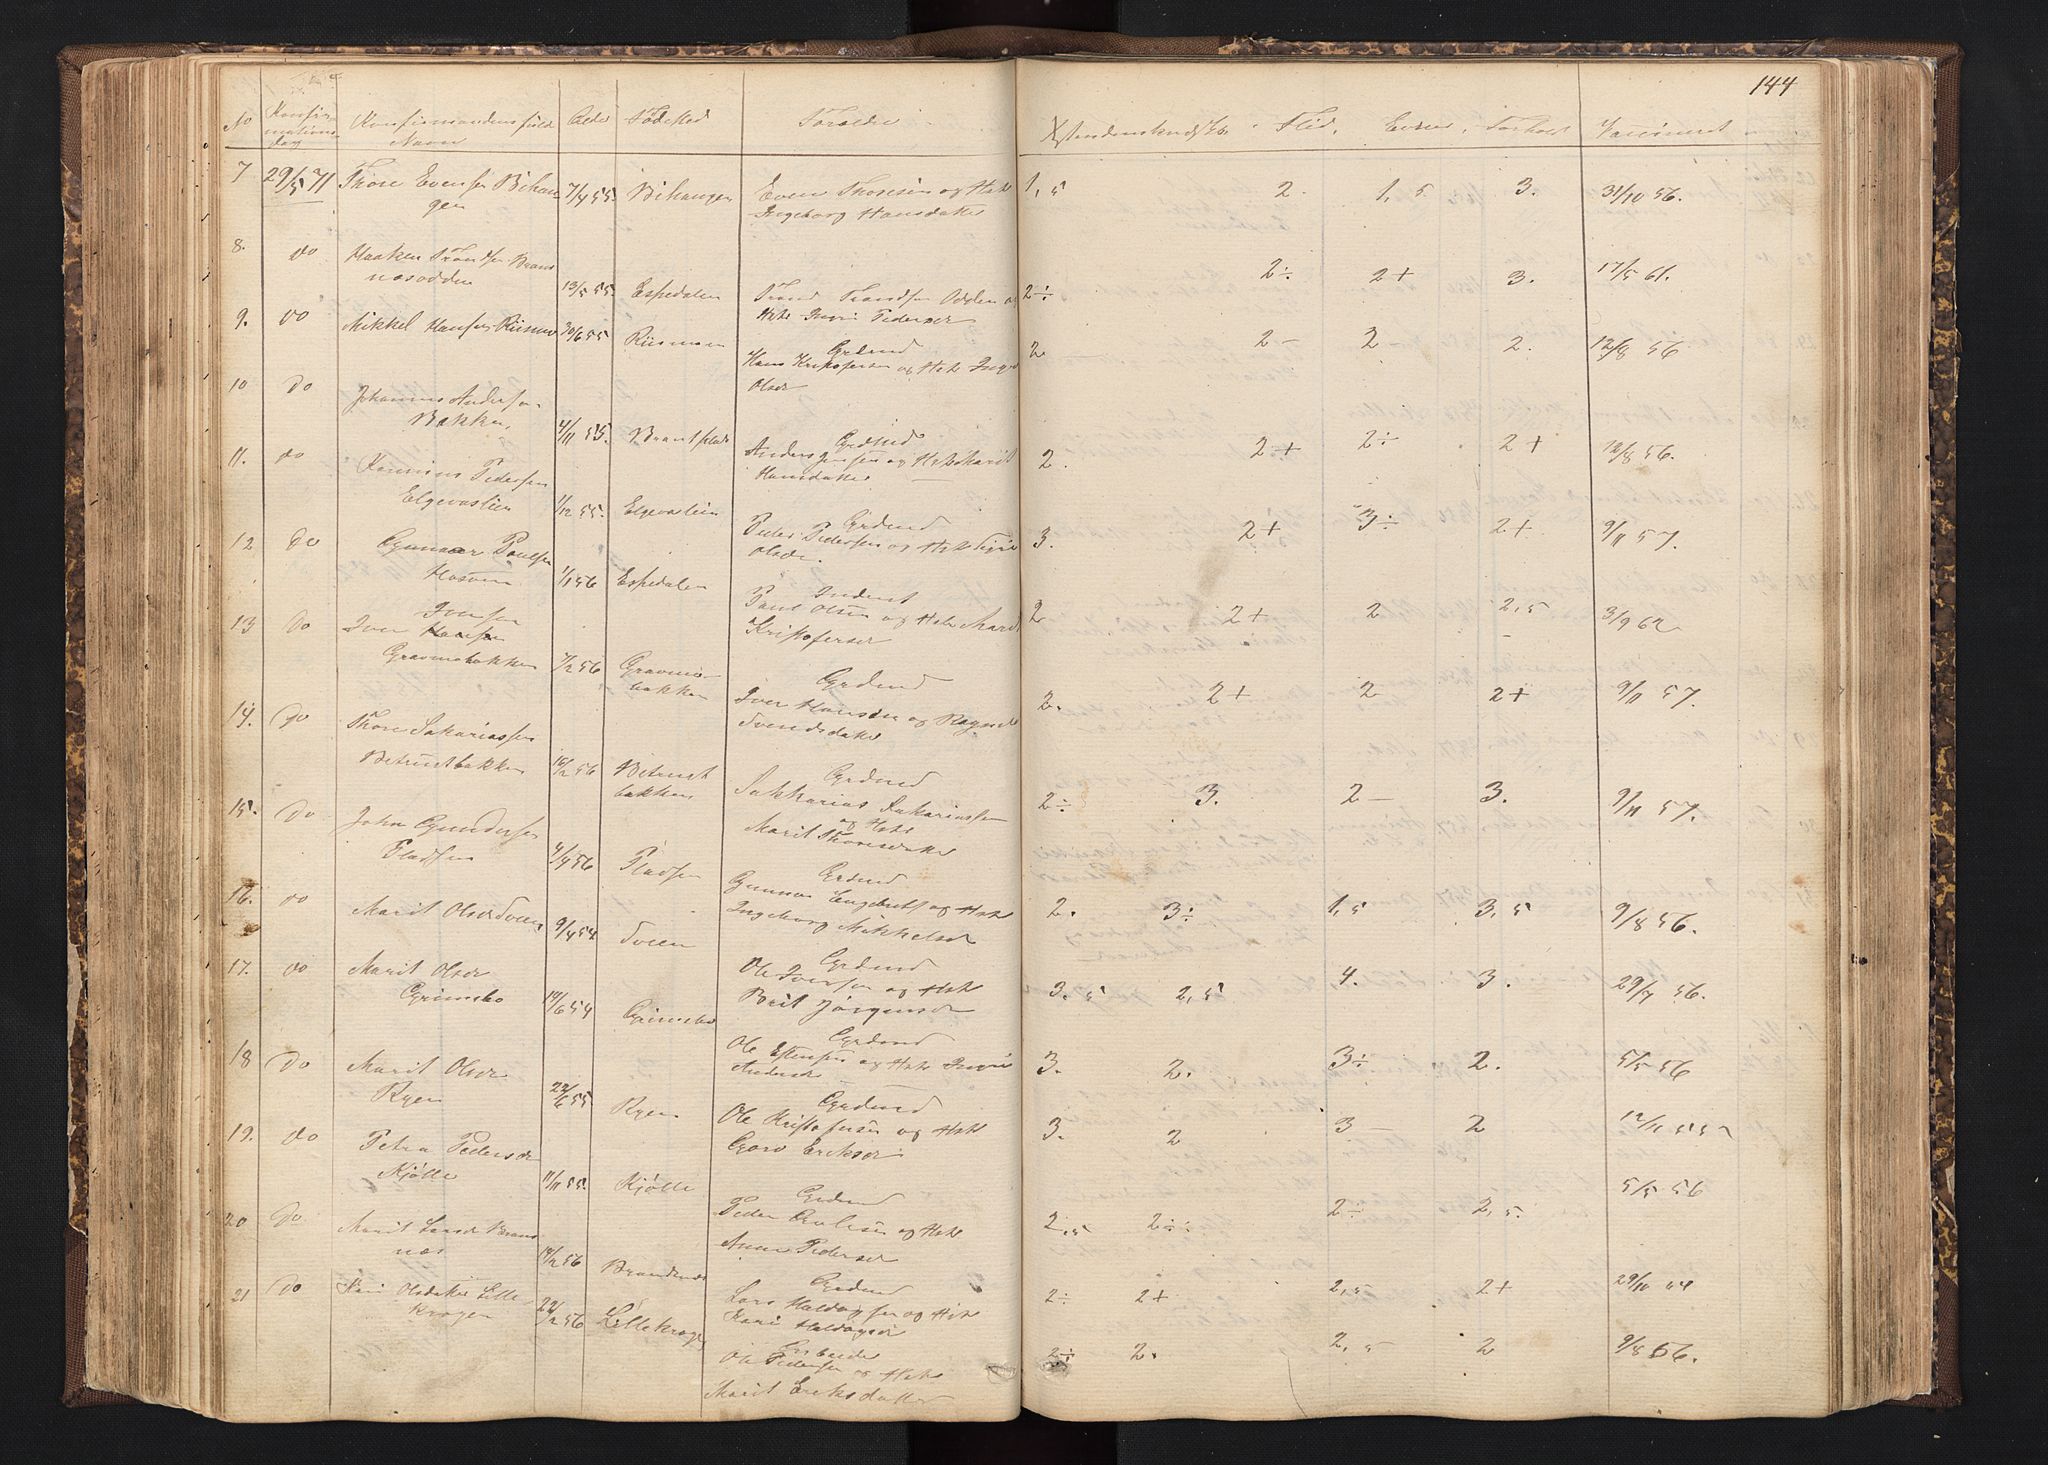 144
No Konfirmations dag Konfirmandens fulde Navn Alder Fødested Forældre Flid, Evner, Forhold Vaccineret
7 29/5 71 Thore Evensen Bihangen 7/4 55. Bihangen Even Thoresen og Hst Ingeborg Hansdatter 1,5 2. 1,5 3. 31/10 56.
8. do Haaken Trondsen Brannæsodden 13/5 55. Espedalen Trond Trondsen Odden og Hst. Ingri Pedersdr 2÷ 2÷ 2+ 3. 17/5 61.
9. do Mikkel Hansen Riismoe 30/6 55 Riismoen Grdmd Hans Kristofersen og Hst Ingri Olsdr 2 2- 2 2. 12/8 56
10 do Johannes Andersen Bakken, 4/11 55. Grdmd Anders Jensen og Hst Marit Hansdatter 2. 2+ 2÷ 2+ 12/8 56.
11. do Pedersen Elgevaslien 1/12 55. Elgevaslien Grdmd Peder Pedersen og Hst Sigri Olsdr. 3. 2+ 3÷ 2+ 9/11 57.
12 do Gunnar Poulsen 1/1 56 Espedalen Inderst Paul Olsen og Hst Marit Kristofersdr 2 2+ 2 2,5 3/9 62
13 do Iver Iversen Gravmobakken 7/2 56 Gravmobakken Grdmd Iver Hansen og Svendsdatter 2. 2+ 2 2+ 9/11 57.
14. do Thore Sakariassen Betrustbakken 16/2 56 Betrustbakken Grdmd Sakkarias Sakariassen og Hst Marit Thoresdatter 2÷ 3. 2- 3. 9/11 57.
15. do John Gundersen Pladsen 4/4 56 Pladsen Grdmd Gunnar Engebrets og Hst Ingeborg Mikkelsdr 2. 3÷ 1,5 3,5 9/8 56.
16. do Marit Olsdr Sveen 9/4 54 Sveen Grdmd Ole Iversen og Hst Brit Jørgensdr 3.5 2,5 4. 3. 29/7 56.
17. do Marit Olsdr Grimsbo 19/6 54 Grimsbo Grdmd Ole Estensen og Hst Ingri Andersdr 3. 2. 3÷ 2. 5/5 56
18 do Marit Olsdr Ryen 22/6 55 Ryen Grdmd Ole Kristofersen og Hst Goro Eriksdr 3. 2 3- 2 12/11 55
19. do Petra Pedersdr Kjølle 11/11 55. Kjølle Grdmd Peder og Hst Anne Pedersdr 2,5 2÷ 2÷ 2,5. 5/5 56
20 do Marit Larsdr Brannæs 14/2 56 Brandnæs Grdmd Lars Haldogsen og Hst Kari Haldogsdr 2÷ 2+ 2,5 2+ 29/10
21 do Kari Olsdatter Lillekrogen 22/2 56 Lillekrogen Ole Pedersen og Hst Marit Eriksdatter 2÷ 2. 2,5 2 9/8 56.